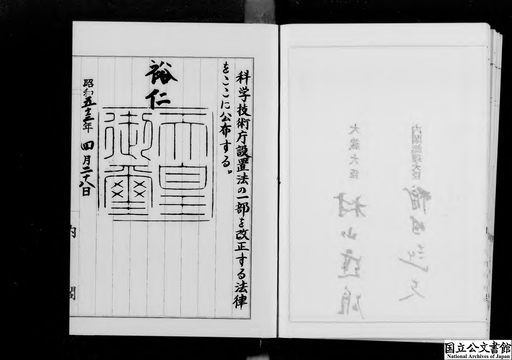 科学技術庁設置法の一部を改正する法律
をここに公布する。
裕仁
天皇
御璽
昭和五十三年四月二十八日
内閣
内閣総理大臣
大蔵大臣
村山達雄
国立公文書館
National Archives of Japan